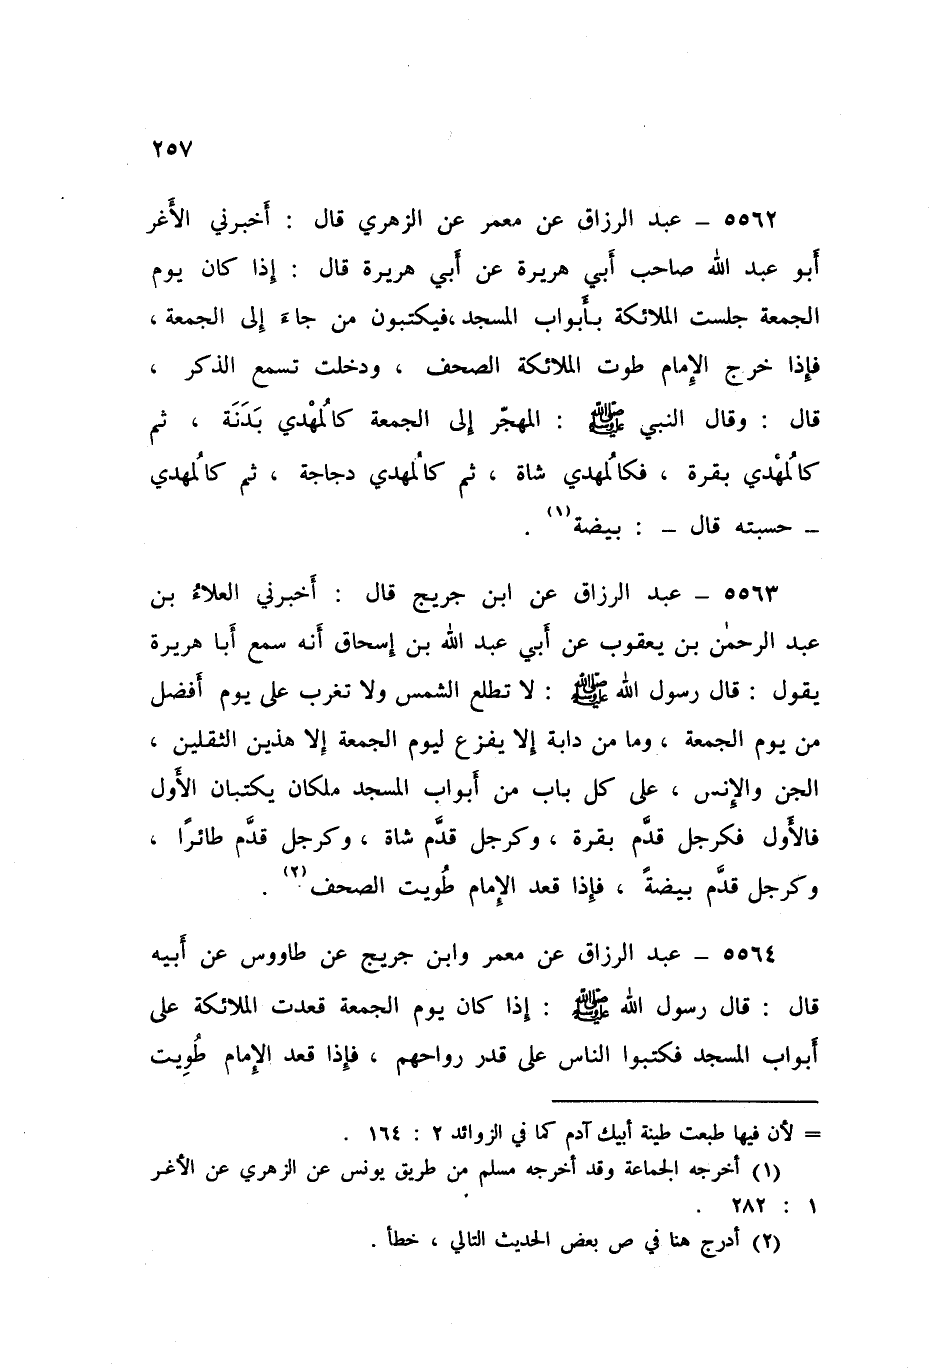 ٢٥٧
٥٥٦٢ – عبد الرزاق عن معمر عن الزهري قال : أخبرني الأغر
أبو عبد الله صاحب أبي هريرة عن أبي هريرة قال : إذا كان يوم
الجمعة جلست الملائكة بأبواب المسجد،فيكتبون من جاءَ إلى الجمعة ،
فإذا خرج الإمام طوت الملائكة الصحف ، ودخلت تسمع الذكر ،
قال : وقال النبي ﷺ : المهجّر إلى الجمعة كالُمهْدي بَدَنَة ، ثم
كالُمهْدي بقرة ، فكالُمهدي شاة ، ثم كالُمهدي دجاجة ، ثم كالُمهدي
– حسبته قال – : بيضة(١) .
٥٥٦٣ – عبد الرزاق عن ابن جريج قال : أخبرني العلاءُ بن
عبد الرحمٰن بن يعقوب عن أبي عبد الله بن إسحاق أنه سمع أبا هريرة
يقول : قال رسول الله ﷺ : لا تطلع الشمس ولا تغرب على يوم أفضل
من يوم الجمعة ، وما من دابة إلا يفزع ليوم الجمعة إلا هذين الثقلين ،
الجن والإنس ، على كل باب من أبواب المسجد ملكان يكتبان الأول
فالأول فكرجل قدَّم بقرة ، وكرجل قدَّم شاة ، وكرجل قدَّم طائرًا ،
وكرجل قدَّم بيضةً ، فإذا قعد الإمام طُويت الصحف(٢) .
٥٥٦٤ – عبد الرزاق عن معمر وابن جريج عن طاووس عن أبيه
قال : قال رسول الله ﷺ : إذا كان يوم الجمعة قعدت الملائكة على
أبواب المسجد فكتبوا الناس على قدر رواحهم ، فإذا قعد الإمام طُوِيت
= لأن فيها طبعت طينة أبيك آدم كما في الزوائد ٢ : ١٦٤ .
(١) أخرجه الجماعة وقد أخرجه مسلم من طريق يونس عن الزهري عن الأغر
١ : ٢٨٢ .
(٢) أدرج هنا في ص بعض الحديث التالي ، خطأ .